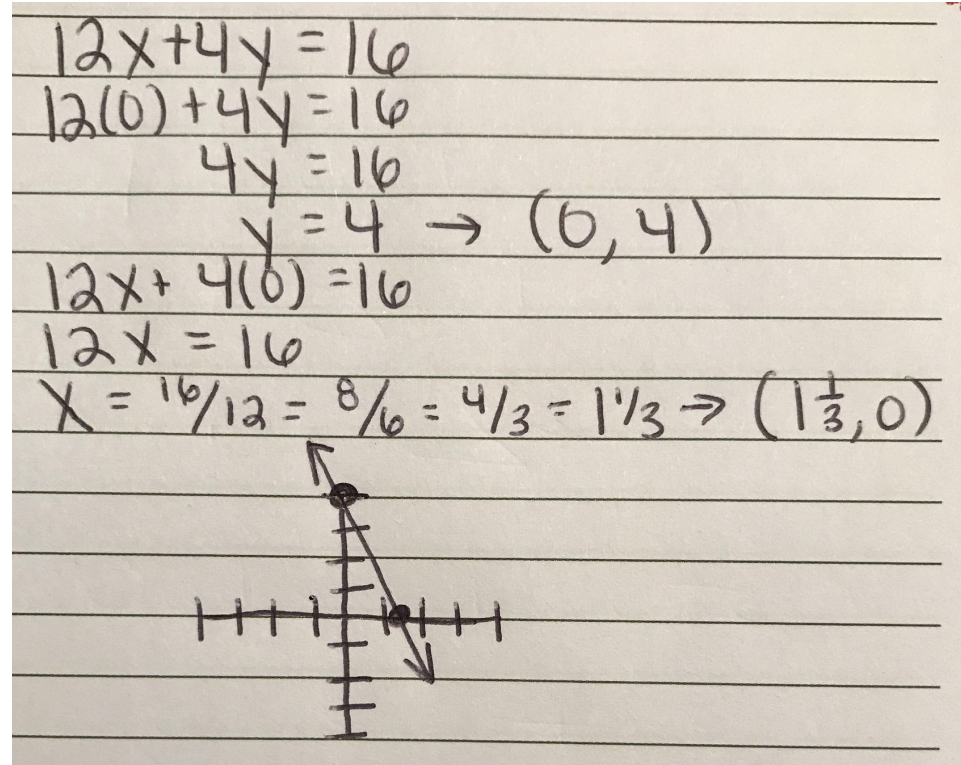 12x+4y=16
12(0)+4y=16
4y=16
y=4 → (0,4)
12x+4(0)=16
12x=16
x=16/12=8/6=4/3=1 1/3→(1 1/3,0)